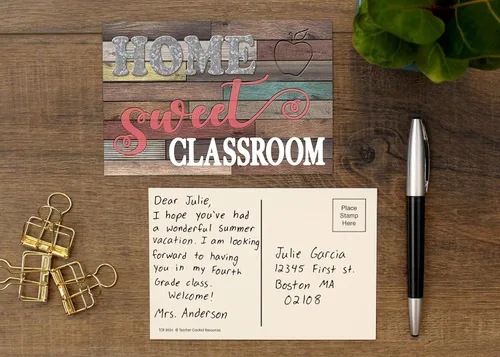 HOME
Sweet
CLASSROOM
Dear Julie,
I hope you've had
a wonderful summer
vacation. I am looking
forward to having
you in my Fourth
Grade class.
Welcome!
Mrs. Anderson
Place
Stamp
Here
Julie Garcia
12345 First St.
Boston MA
02108
TCR 8816 © Teacher Created Resources